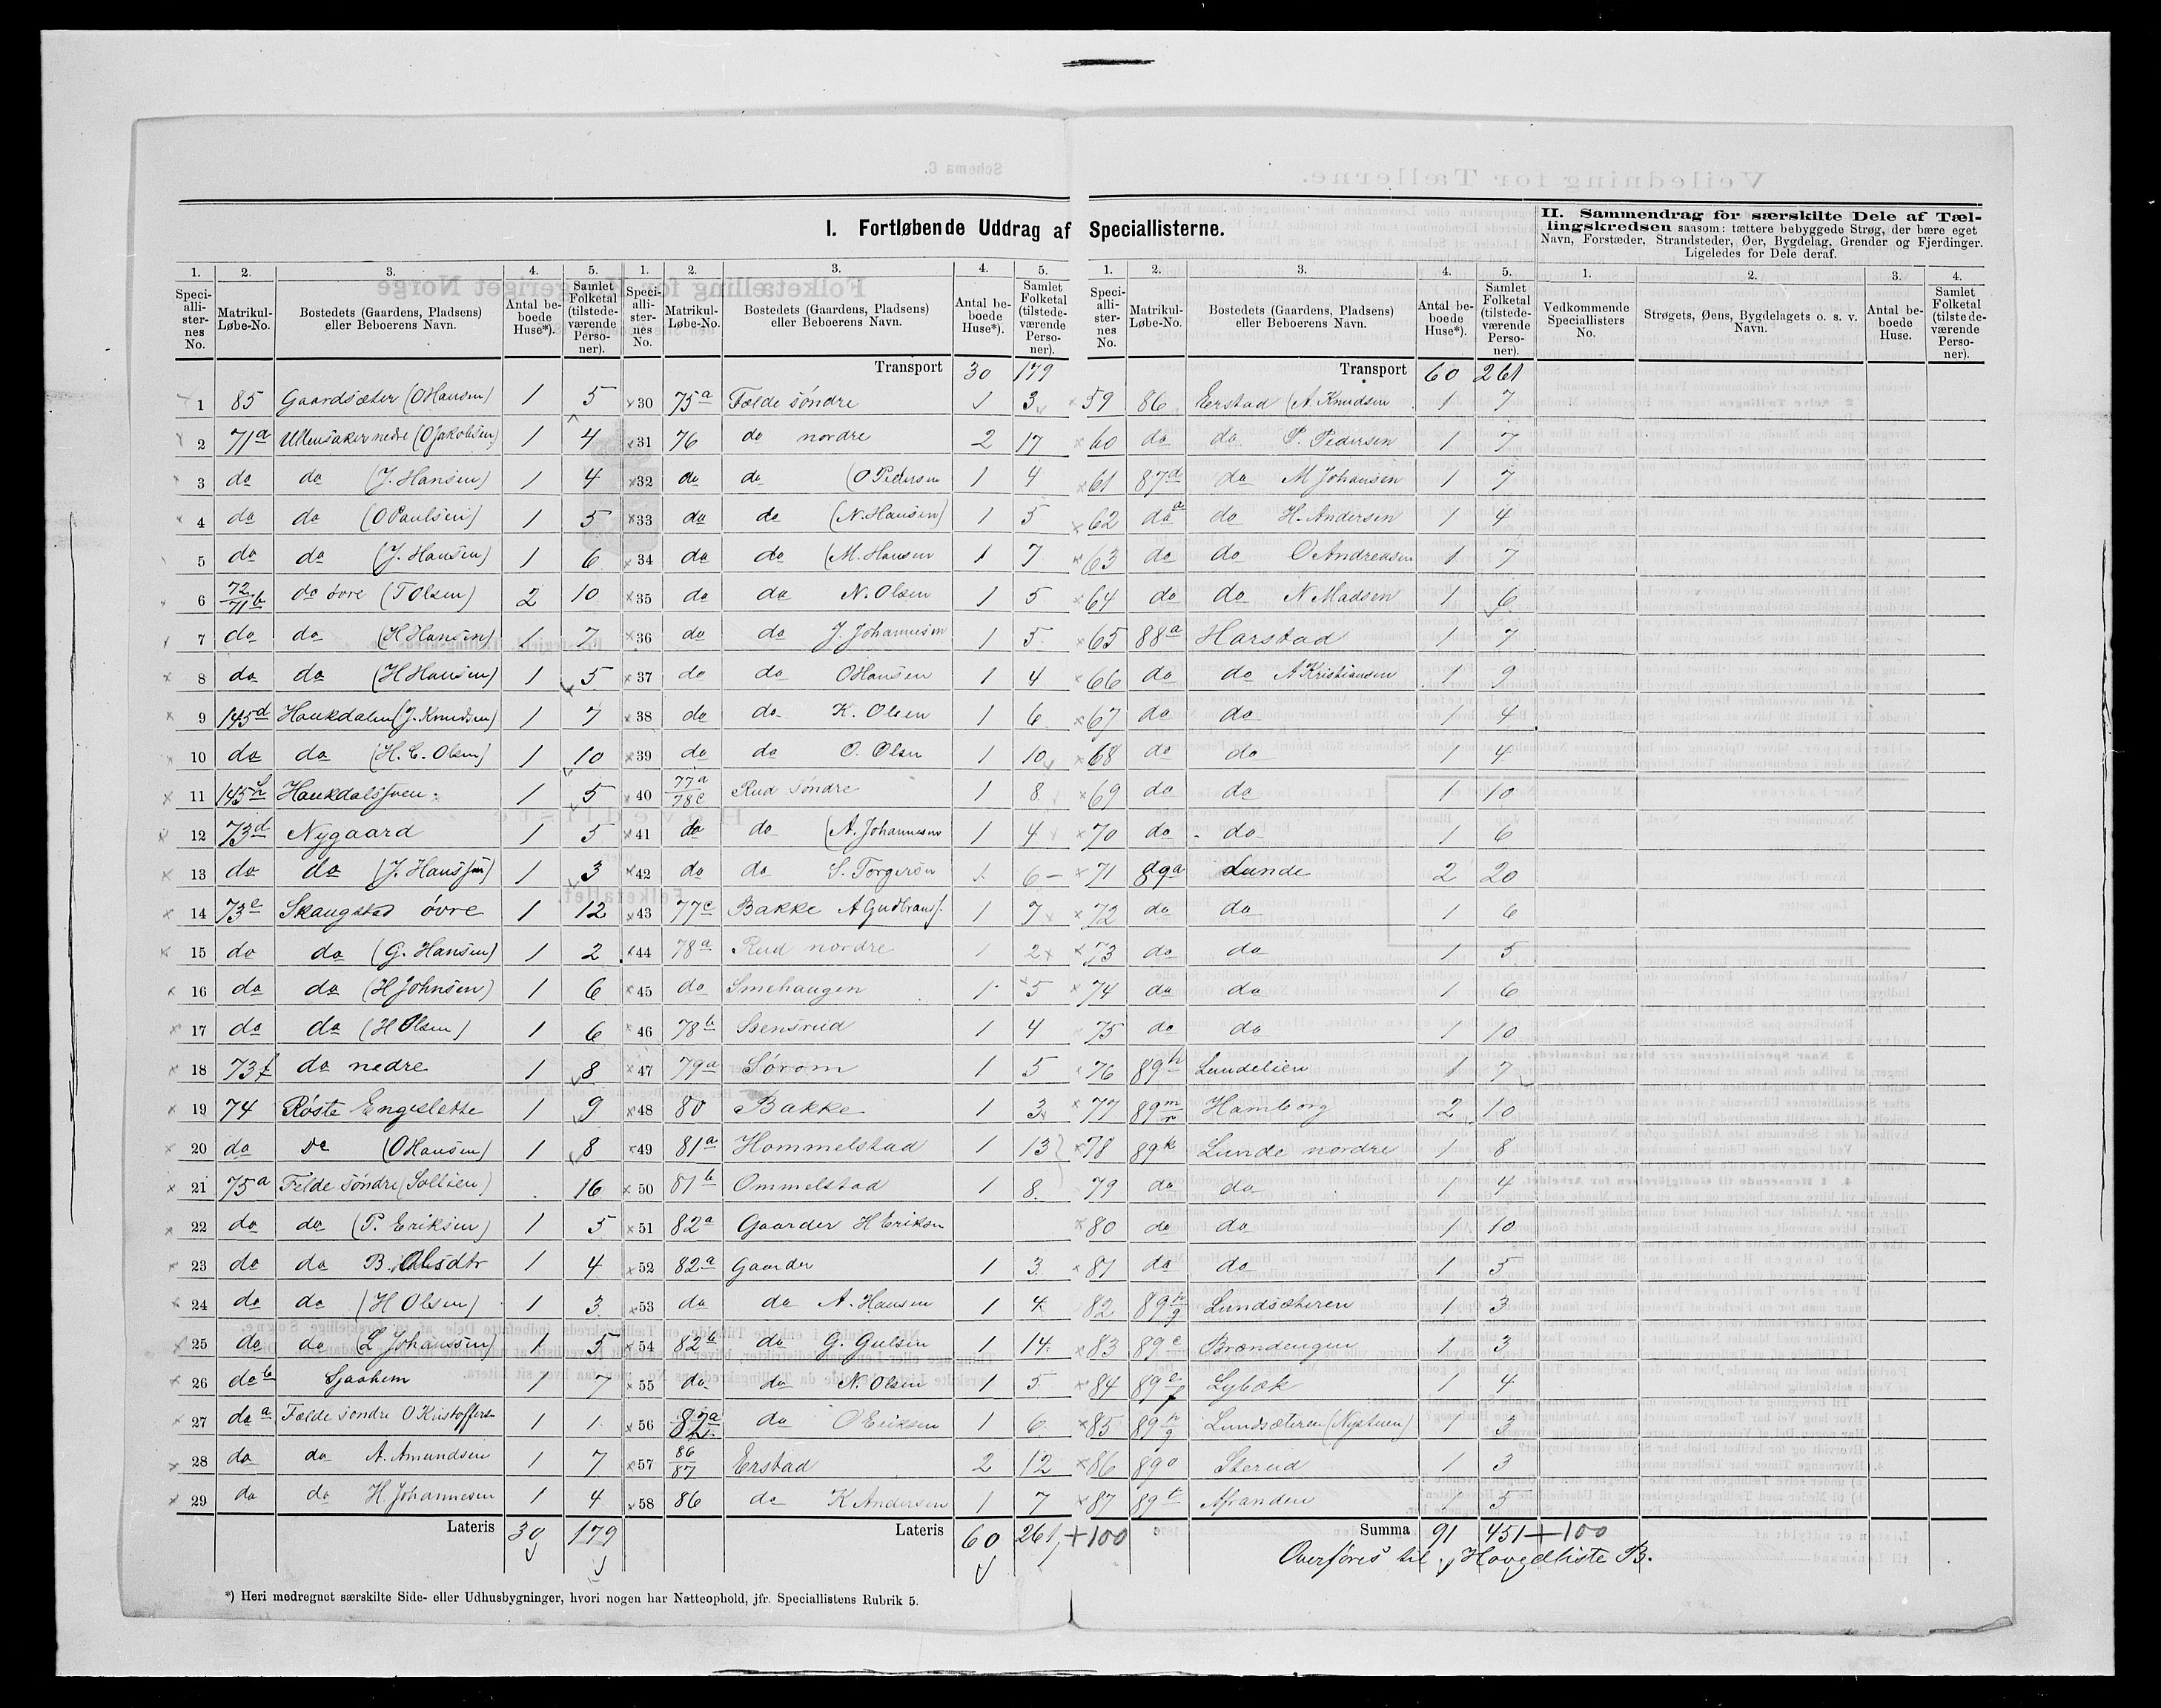 I. Fortløbende Uddrag af Speciallisterne.
II. Sammendrag for særskilte Dele af Tællingskredsen saasom: tættere bebyggede Strøg, der bære eget
Navn, Forstæder, Strandsteder, Øer, Bygdelag, Grender og Fjerdinger.
Ligeledes for Dele deraf.
1. 2. 3. 4. 5.
Speciallisternes No. Matrikul-Løbe-No. Bostedets (Gaardens, Pladsens) eller Beboerens Navn. Antal beboede Huse*). Samlet Folketal (tilstedeværende Personer).
1 85 Gaardsæter (O Hansen) 1 5
2 71a Ullensaker nedre (O Jakobsen) 1 4
3 do do (J. Hansen) 1 4
4 do do (O Paulsen) 1 5
5 do do (J. Hansen) 1 6
6 72/71b do övre (T Olsen) 2 10
7 do do (H Hansen) 1 7
8 do do (H Hansen) 1 5
9 145d Haukdalen (J. Knudsen) 1 7
10 do do (H. C. Olsen) 1 10
11 145h 1 5
12 73d Nygaard 1 5
13 do do 1 3
14 73e Skaugstad övre 1 12
15 do do (G. Hansen) 1 2
16 do do (H Johnsen) 1 6
17 do do (H Olsen) 1 6
18 73f do nedre 1 8
19 74 Røste Engeslette 1 9
20 do do (O Hansen) 1 8
21 75a Felde söndre (Sollien) 16
22 do do (P. Eriksen) 1 5
23 do do B. Olsdtr 1 4
24 do do (H Olsen) 1 3
25 do do (L Johanssen) 1 5
26 do b 1 7
27 do a Fælde söndre O Kristoffers 1 1
28 do do A. Amundsen 1 7
29 do do H. Johannesen 1 4
Lateris 30 179
1. 2. 3. 4. 5.
Speciallisternes No. Matrikul-Løbe-No. Bostedets (Gaardens, Pladsens) eller Beboerens Navn. Antal beboede Huse*). Samlet Folketal (tilstedeværende Personer).
Transport 30 179
30 75a Fælde söndre 1 3
31 76 do nordre 2 17
32 do do (O Pedersen 1 4
33 do do (N. Hansen) 1 5
34 do do (M. Hansen 1 7
35 do do N. Olsen 1 5
36 do do J. Johannesen 1 5
37 do do O Hansen 1 4
38 do do K. Olsen 1 6
39 do do O. Olsen 1 10
40 77a/78c Rud söndre 1 8
41 do do (A. Johannesen 1 4
42 do do S. Torgersen 1 6
43 77c Bakke A Gudbrands. 1 7
44 78a Rud nordre 1 2
45 do Smehaugen 1 5
46 78b 1 4
47 79a Sörom 1 5
48 80 Bakke 1 3
49 81a Hommelstad 1 13
50 81b Ommelstad 1 8
51 82a Gaarder H Eriksen
52 82a Gaarder 1 3
53 do do A. Hansen 1 4
54 82b do G. Gulsen 1 14
55 do do N. Olsen 1 5
56 82a do O Eriksen 1 6
57 86/87 Erstad 2 12
58 86 do K Andersen 1 7
Lateris 60 261 + 100
1. 2. 3. 4. 5.
Speciallisternes No. Matrikul-Løbe-No. Bostedets (Gaardens, Pladsens) eller Beboerens Navn. Antal beboede Huse*). Samlet Folketal (tilstedeværende Personer).
Transport 60 261
59 86 Eerstad (A. Knudsen 1 7
60 do do P. Pedersen 1 7
61 87d do M Johansen 1 7
62 do do H. Andersen 1 4
63 do do O Andreasen 1 7
64 do do N Madsen 1 6
65 88a Harstad 1 7
66 do do A Kristiansen 1 9
67 do do 1 4
68 do do 1 4
69 do do 1 10
70 do do 1 6
71 89a Lunde 2 20
72 do do 1 6
73 do do 1 5
74 do do 1 6
75 do do 1 10
76 89h Lundelien 1 7
77 89m/n Hamborg 2 10
78 89k Lunde nordre 1 8
79 do do 1 4
80 do do 1 10
81 do do 1 5
82 89 Lundsæteren 1 3
83 89c Brændengen 1 3
84 89e/f Lybæk 1 4
85 89 Lundsæteren (Nystuen) 1 3
86 89o Sterud 1 3
87 89 1 5
Summa 91 451 + 100
Overføres til Hovedliste B.
1. 2. 3. 4.
Vedkommende Speciallisters No. Strøgets, Øens, Bygdelagets o. s. v. Navn. Antal beboede Huse. Samlet Folketal (tilstedeværende Personer).
*) Heri medregnet særskilte Side- eller Udhusbygninger, hvori nogen har Natteophold, jfr. Speciallistens Rubrik 5.